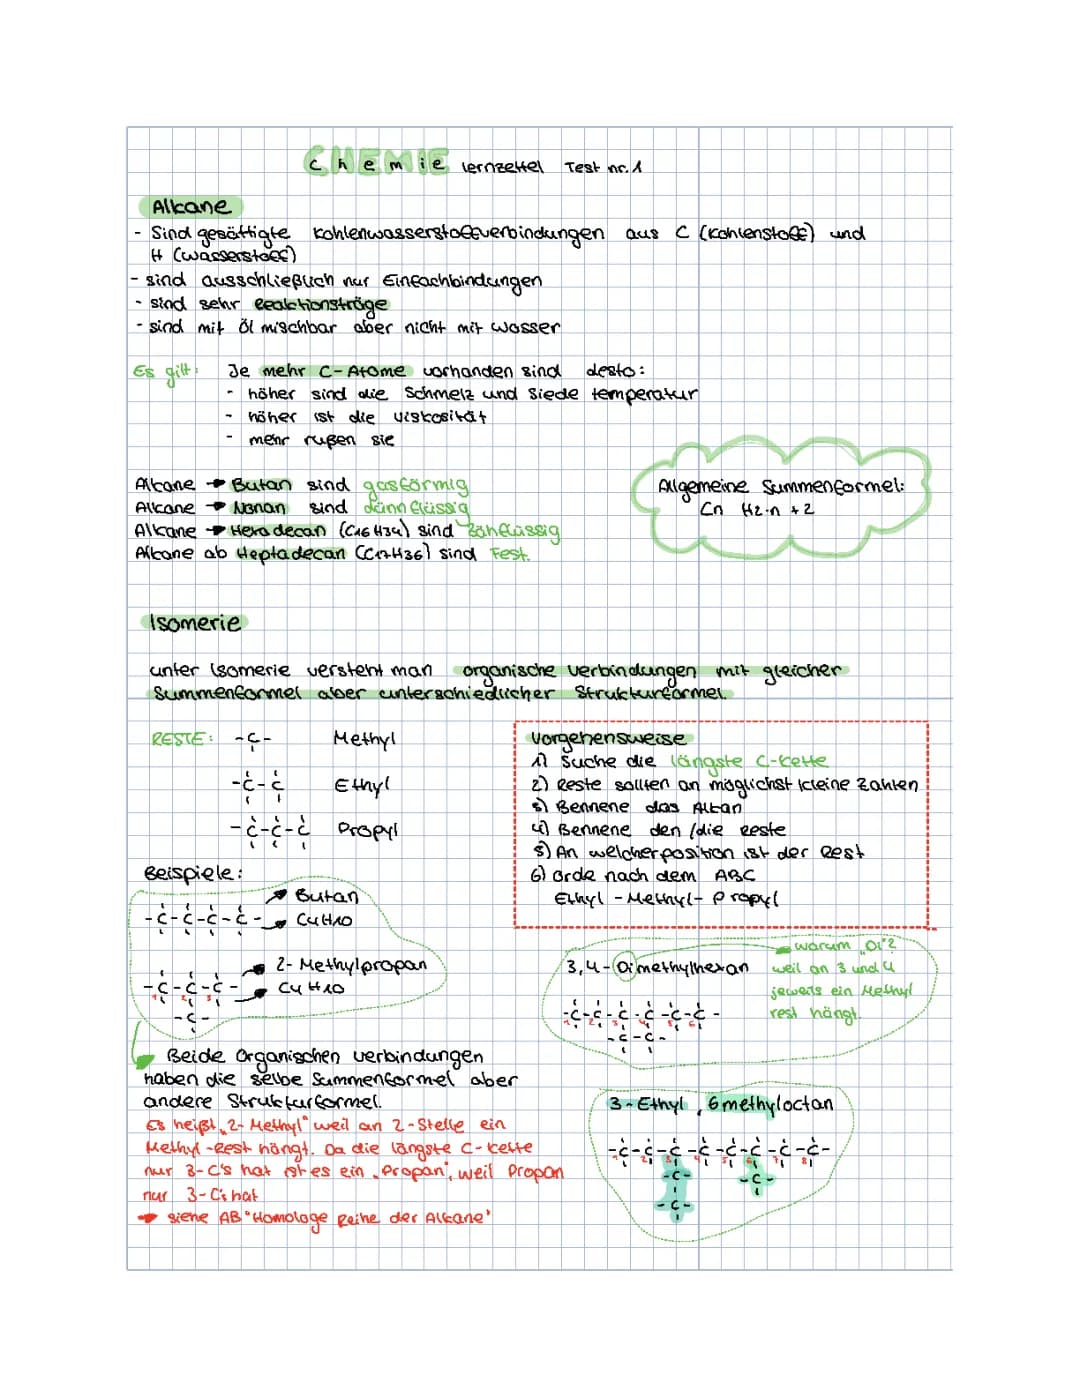 CHEMIE lernzettel Test nr. 1
Alkane
- Sind gesättigte Kohlenwasserstoffverbindungen aus C (Kohlenstoff) und
H (Wasserstoff)
- sind ausschließlich nur Einfachbindungen
- sind sehr Reaktionsträge
- sind mit Öl mischbar aber nicht mit wasser
Es gilt: Je mehr C-Atome vorhanden sind desto:
- höher sind die Schmelz und Siede temperatur
- höher ist die Viskosität
- mehr rußen sie
Alkane → Butan sind gasförmig
Alkane → Nonan sind dünnflüssig
Alkane → Hexadecan (C16H34) sind zähflüssig
Alkane ab Heptadecan (C17H36) sind Fest.
Allgemeine Summenformel:
Cn H2·n +2
Isomerie
unter Isomerie versteht man organische Verbindungen mit gleicher
Summenformel aber unterschiedlicher Strukturformel.
RESTE: -C- Methyl
-C-C Ethyl
-C-C-C Propyl
Vorgehensweise
1) Suche die längste C-Kette
2) Reste sollten an möglichst kleine Zahlen
3) Bennene das Alkan
4) Bennene den /die Reste
5) An welcherposition ist der Rest
6) Orde nach dem ABC
Ethyl - Methyl- Propyl
Beispiele:
-C-C-C-C- → Butan
→ C4H10
-C-C-C- → 2-Methylpropan
→ C4H10
1 2 3
-C-
Beide Organischen verbindungen
haben die selbe Summenformel aber
andere Strukturformel.
Es heißt „2-Methyl" weil an 2-Stelle ein
Methyl-Rest hängt. Da die längste C-Kette
nur 3-C's hat ist es ein „Propan", weil Propan
nur 3-C's hat
→ siehe AB "Homologe Reihe der Alkane"
3,4-Dimethylhexan
→ warum „Di"?
weil an 3 und 4
jeweils ein Methyl
rest hängt.
-C-C-C-C-C-C-
1 2 3 4 5 6
-C-C-
3-Ethyl, 6methyloctan
-C-C-C-C-C-C-C-C-
1 2 3 4 5 6 7 8
-C- -C-
-C-